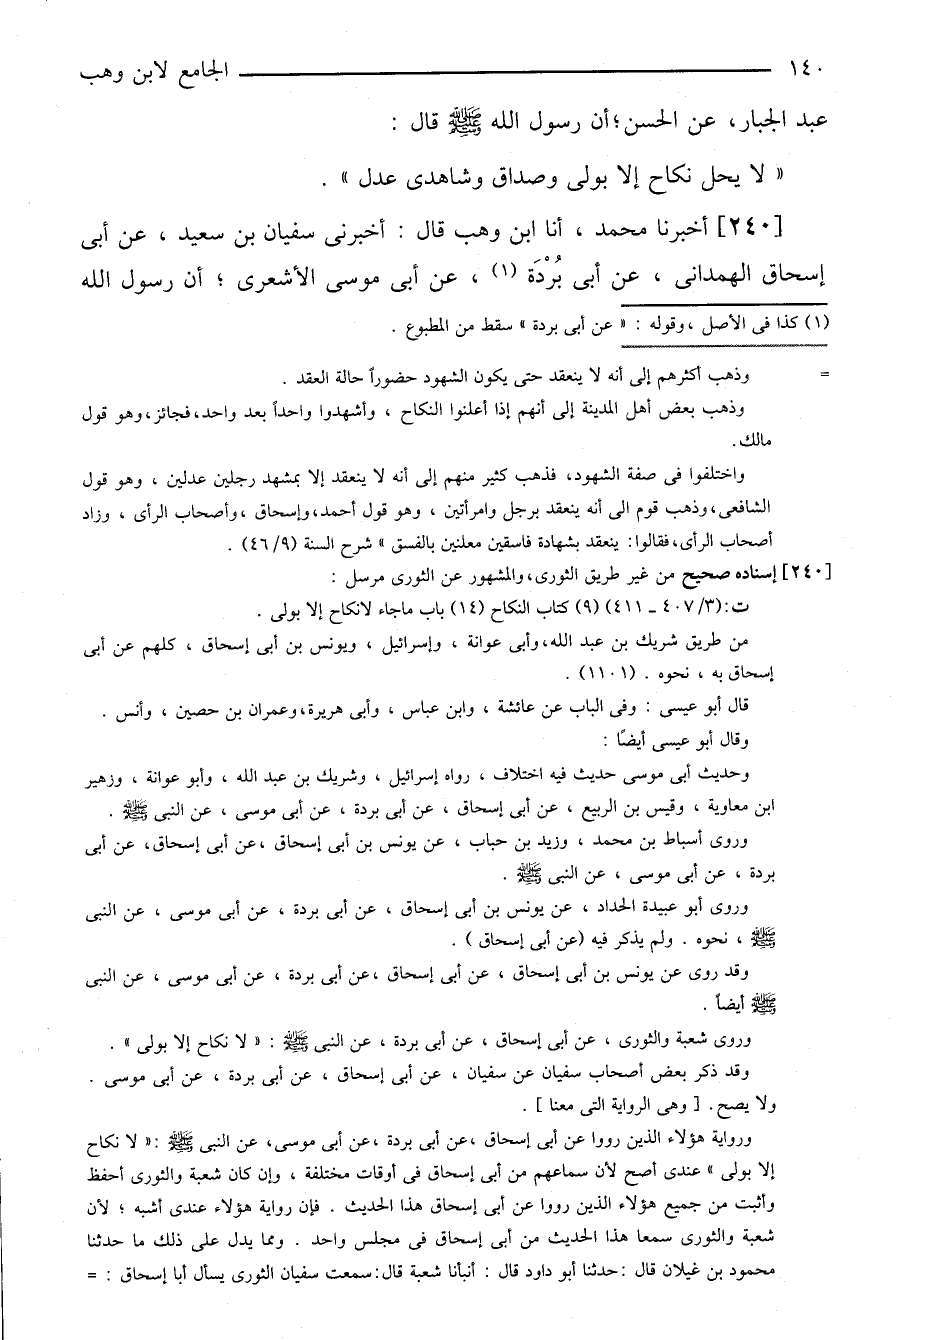 ١٤٠ الجامع لابن وهب
عبد الجبار، عن الحسن؛ أن رسول الله ﷺ قال :
« لا يحل نكاح إلا بولى وصداق وشاهدى عدل » .
[٢٤٠] أخبرنا محمد ، أنا ابن وهب قال : أخبرنى سفيان بن سعيد ، عن أبى
إسحاق الهمدانى ، عن أبى بُرْدَة (١) ، عن أبى موسى الأشعرى ؛ أن رسول الله
(١) كذا فى الأصل ، وقوله : « عن أبى بردة » سقط من المطبوع .
= وذهب أكثرهم إلى أنه لا ينعقد حتى يكون الشهود حضوراً حالة العقد .
وذهب بعض أهل المدينة إلى أنهم إذا أعلنوا النكاح ، وأشهدوا واحداً بعد واحد، فجائز، وهو قول
مالك.
واختلفوا فى صفة الشهود، فذهب كثير منهم إلى أنه لا ينعقد إلا بمشهد رجلين عدلين ، وهو قول
الشافعى، وذهب قوم الى أنه ينعقد برجل وامرأتين ، وهو قول أحمد، وإسحاق ، وأصحاب الرأى ، وزاد
أصحاب الرأى، فقالوا: ينعقد بشهادة فاسقين معلنين بالفسق » شرح السنة (٩/ ٤٦) .
[٢٤٠] إسناده صحيح من غير طريق الثورى، والمشهور عن الثورى مرسل :
ت: (٣/ ٤٠٧ ـ ٤١١) (٩) كتاب النكاح (١٤) باب ماجاء لانكاح إلا بولى .
من طريق شريك بن عبد الله، وأبى عوانة ، وإسرائيل ، ويونس بن أبى إسحاق ، كلهم عن أبى
إسحاق به ، نحوه . (١١٠١) .
قال أبو عيسى : وفى الباب عن عائشة ، وابن عباس ، وأبى هريرة، وعمران بن حصين ، وأنس .
وقال أبو عيسى أيضًا :
وحديث أبى موسى حديث فيه اختلاف ، رواه إسرائيل ، وشريك بن عبد الله ، وأبو عوانة ، وزهير
ابن معاوية ، وقيس بن الربيع ، عن أبى إسحاق ، عن أبى بردة ، عن أبى موسى ، عن النبى ﷺ .
وروى أسباط بن محمد ، وزيد بن حباب ، عن يونس بن أبى إسحاق ، عن أبى إسحاق، عن أبى
بردة ، عن أبى موسى ، عن النبى ﷺ .
وروى أبو عبيدة الحداد ، عن يونس بن أبى إسحاق ، عن أبى بردة ، عن أبى موسى ، عن النبى
ﷺ ، نحوه . ولم يذكر فيه (عن أبى إسحاق ) .
وقد روى عن يونس بن أبى إسحاق ، عن أبى إسحاق ، عن أبى بردة ، عن أبى موسى ، عن النبى
ﷺ أيضاً .
وروى شعبة والثورى ، عن أبى إسحاق ، عن أبى بردة ، عن النبى ﷺ : « لا نكاح إلا بولى » .
وقد ذكر بعض أصحاب سفيان عن سفيان ، عن أبى إسحاق ، عن أبى بردة ، عن أبى موسى .
ولا يصح. [ وهى الرواية التى معنا ] .
ورواية هؤلاء الذين رووا عن أبى إسحاق ، عن أبى بردة ، عن أبى موسى، عن النبى ﷺ : « لا نكاح
إلا بولى » عندى أصح لأن سماعهم من أبى إسحاق فى أوقات مختلفة ، وإن كان شعبة والثورى أحفظ
وأثبت من جميع هؤلاء الذين رووا عن أبى إسحاق هذا الحديث . فإن رواية هؤلاء عندى أشبه ؛ لأن
شعبة والثورى سمعا هذا الحديث من أبى إسحاق فى مجلس واحد . ومما يدل على ذلك ما حدثنا
محمود بن غيلان قال : حدثنا أبو داود قال : أنبأنا شعبة قال: سمعت سفيان الثورى يسأل أبا إسحاق : =